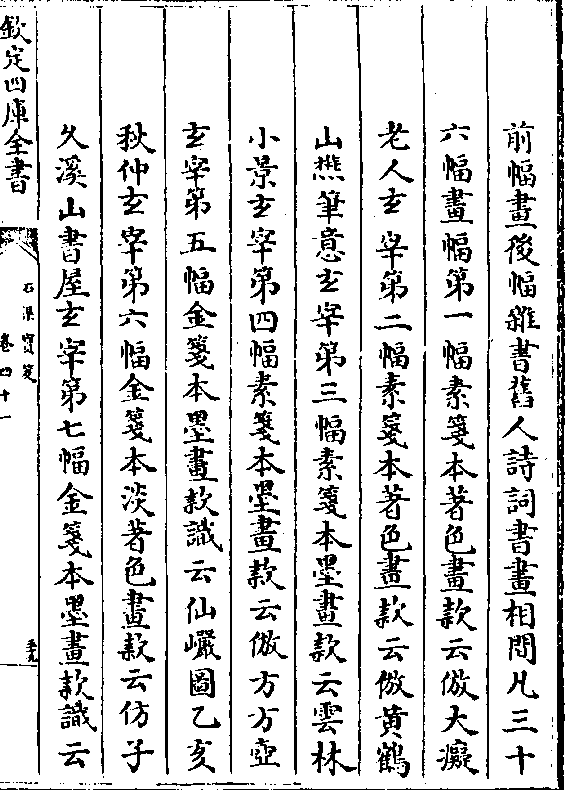 前幅畫後幅雜書舊人詩詞書畫相間凡三十
六幅畫幅第一幅素箋本著色畫款云倣大癡
老人玄宰第二幅素箋本著色畫款云倣黄鶴
山樵筆意玄宰第三幅素箋本墨畫款云雲林
小景玄宰第四幅素箋本墨畫款云倣方方壺
玄宰第五幅金箋本墨畫款識云仙巖圖乙亥
秋仲玄宰第六幅金箋本淡著色畫款云仿子
久溪山書屋玄宰第七幅金箋本墨畫款識云
欽定四庫全書
石渠寳笈
卷四十一